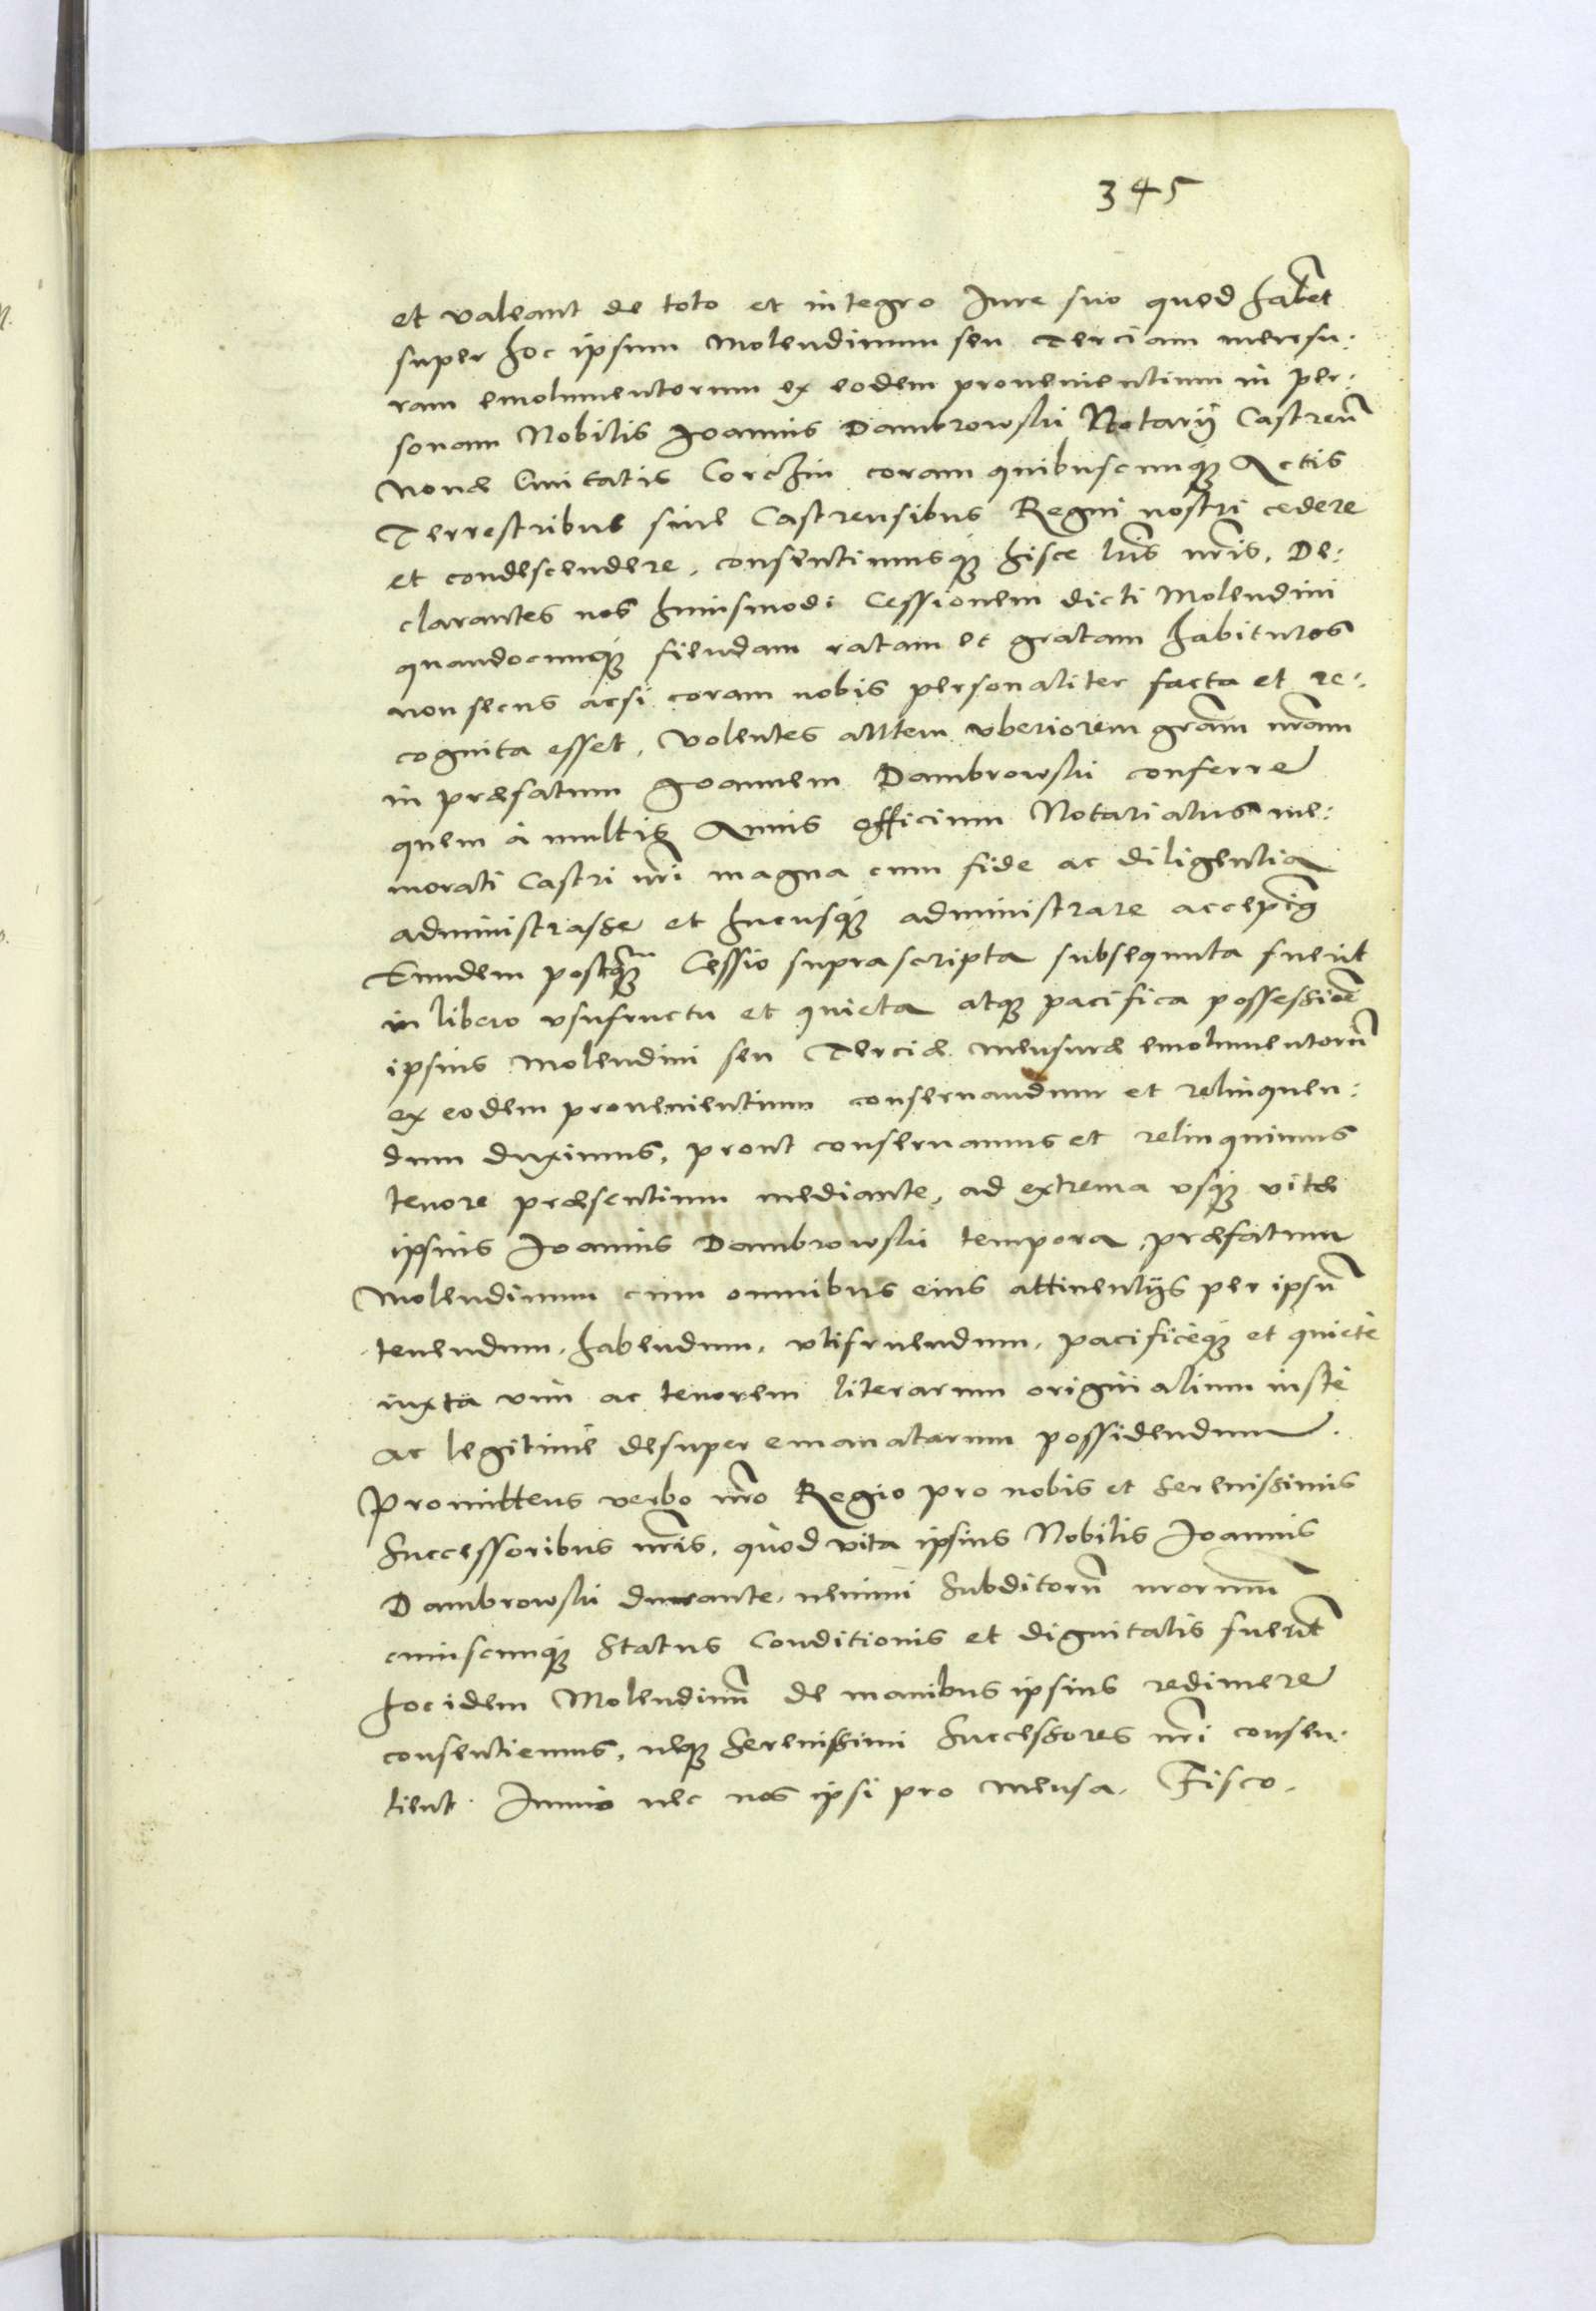 345
et valeant de toto et integro Iure suo quod habet
super hoc ipsum Molendinum seu Terciam mensu:
ram emolumentorum ex eodem prouenientium in per:
sonam Nobilis Ioannis Dambrowski Notarij Castren
Nouæ Ciuitatis Corczin coram quibuscumqꝫ Actis
Terrestribus siue Castrensibus Regni nostri cedere
et condescendere, consentimusqꝫ hisce lris nris. De:
clarantes nos huiusmodi Cessionem dicti Molendini
quandocunqꝫ fiendam ratam et gratam habituros
non secus acsi coram nobis personaliter facta et re:
cognita esset. Volentes autem vberiorem gram nram
in præfatum Joannem Dambrowski conferre
quem à multis Annis officium Notariatus me:
morati Castri nri magna cum fide ac diligentia
administrasse et hucusqꝫ administrare accepim9
Eundem postquam Cessio suprascripta subsequuta fuerit
in libero vsufructu et quieta atqꝫ pacifica possessioe
ipsius Molendini seu Terciæ mensuræ emolumentoru
ex eodem prouenientium conseruandum et relinquen:
dum duximus, prout conseruamus et relinquimus
tenore præsentium mediante, ad extrema vsqꝫ vitæ
ipsius Ioannis Dambrowski tempora, præfatum
Molendinum cum omnibus eius attinentijs per ipsu
tenendum, habendum, vtifruendum, pacificeqꝫ et quietè
iuxta vim ac tenorem literarum originalium iustè
ac legitimè desuper emanatarum possidendum.
Promittens verbo nro Regio pro nobis et Serenissimis
Successoribus nris, quòd vita ipsius Nobilis Ioannis
Dambrowski durante, nemini Subditoru nrorum
cuiuscunqꝫ Status Conditionis et dignitatis fuerit
hoc idem Molendinu de manibus ipsius redimere
consentiemus, neqꝫ Serenissimi Successores nri consen:
tient. Immò nec nos ipsi pro Mensa, Fisco,